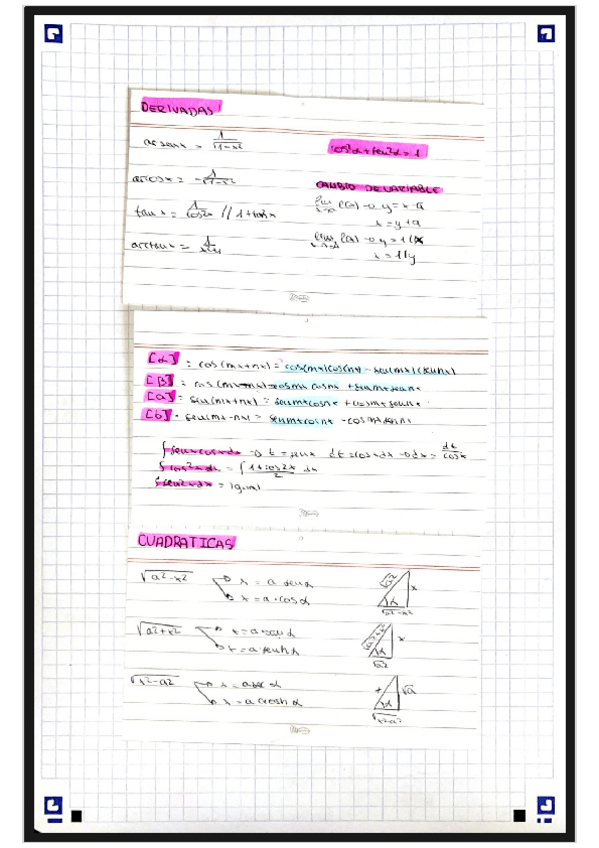 DERIVADAS
arcsenx = 1/√1-x²
cos²α+sen²α=1
arcosx = -1/√1-x²
CAMBIO DE VARIABLE
tanx = 1/cos²x // 1+tan²x
x = y+a
arctanx =
x = 1/y
[α] = cos(mx+nx) = cos(mx)cos(nx) - sen(mx)(sennx)
[β] = cos(mx-nx) = cosmx cosnx + senmxsennx
[a] = sen(mx+nx) = senmxcosnx + cosmxsennx
[b] = sen(mx-nx) = senmxcosnx - cosmxsennx
∫senxcosxdx → t = senx dt = cosxdx → dx = dt/cosx
∫cos²xdx = ∫ 1+cos2x/2 dx
∫sen²xdx = igual
CUADRATICAS
√a²-x² x = a·senα
x = a·cosα
x
α
√a²-x²
√a²+x² x = a·tanα
x = a·senhα
√a²+x²
x
α
√a²
√x²-a² x = a·secα
x = a·coshα
x
√a
α
√x²-a²